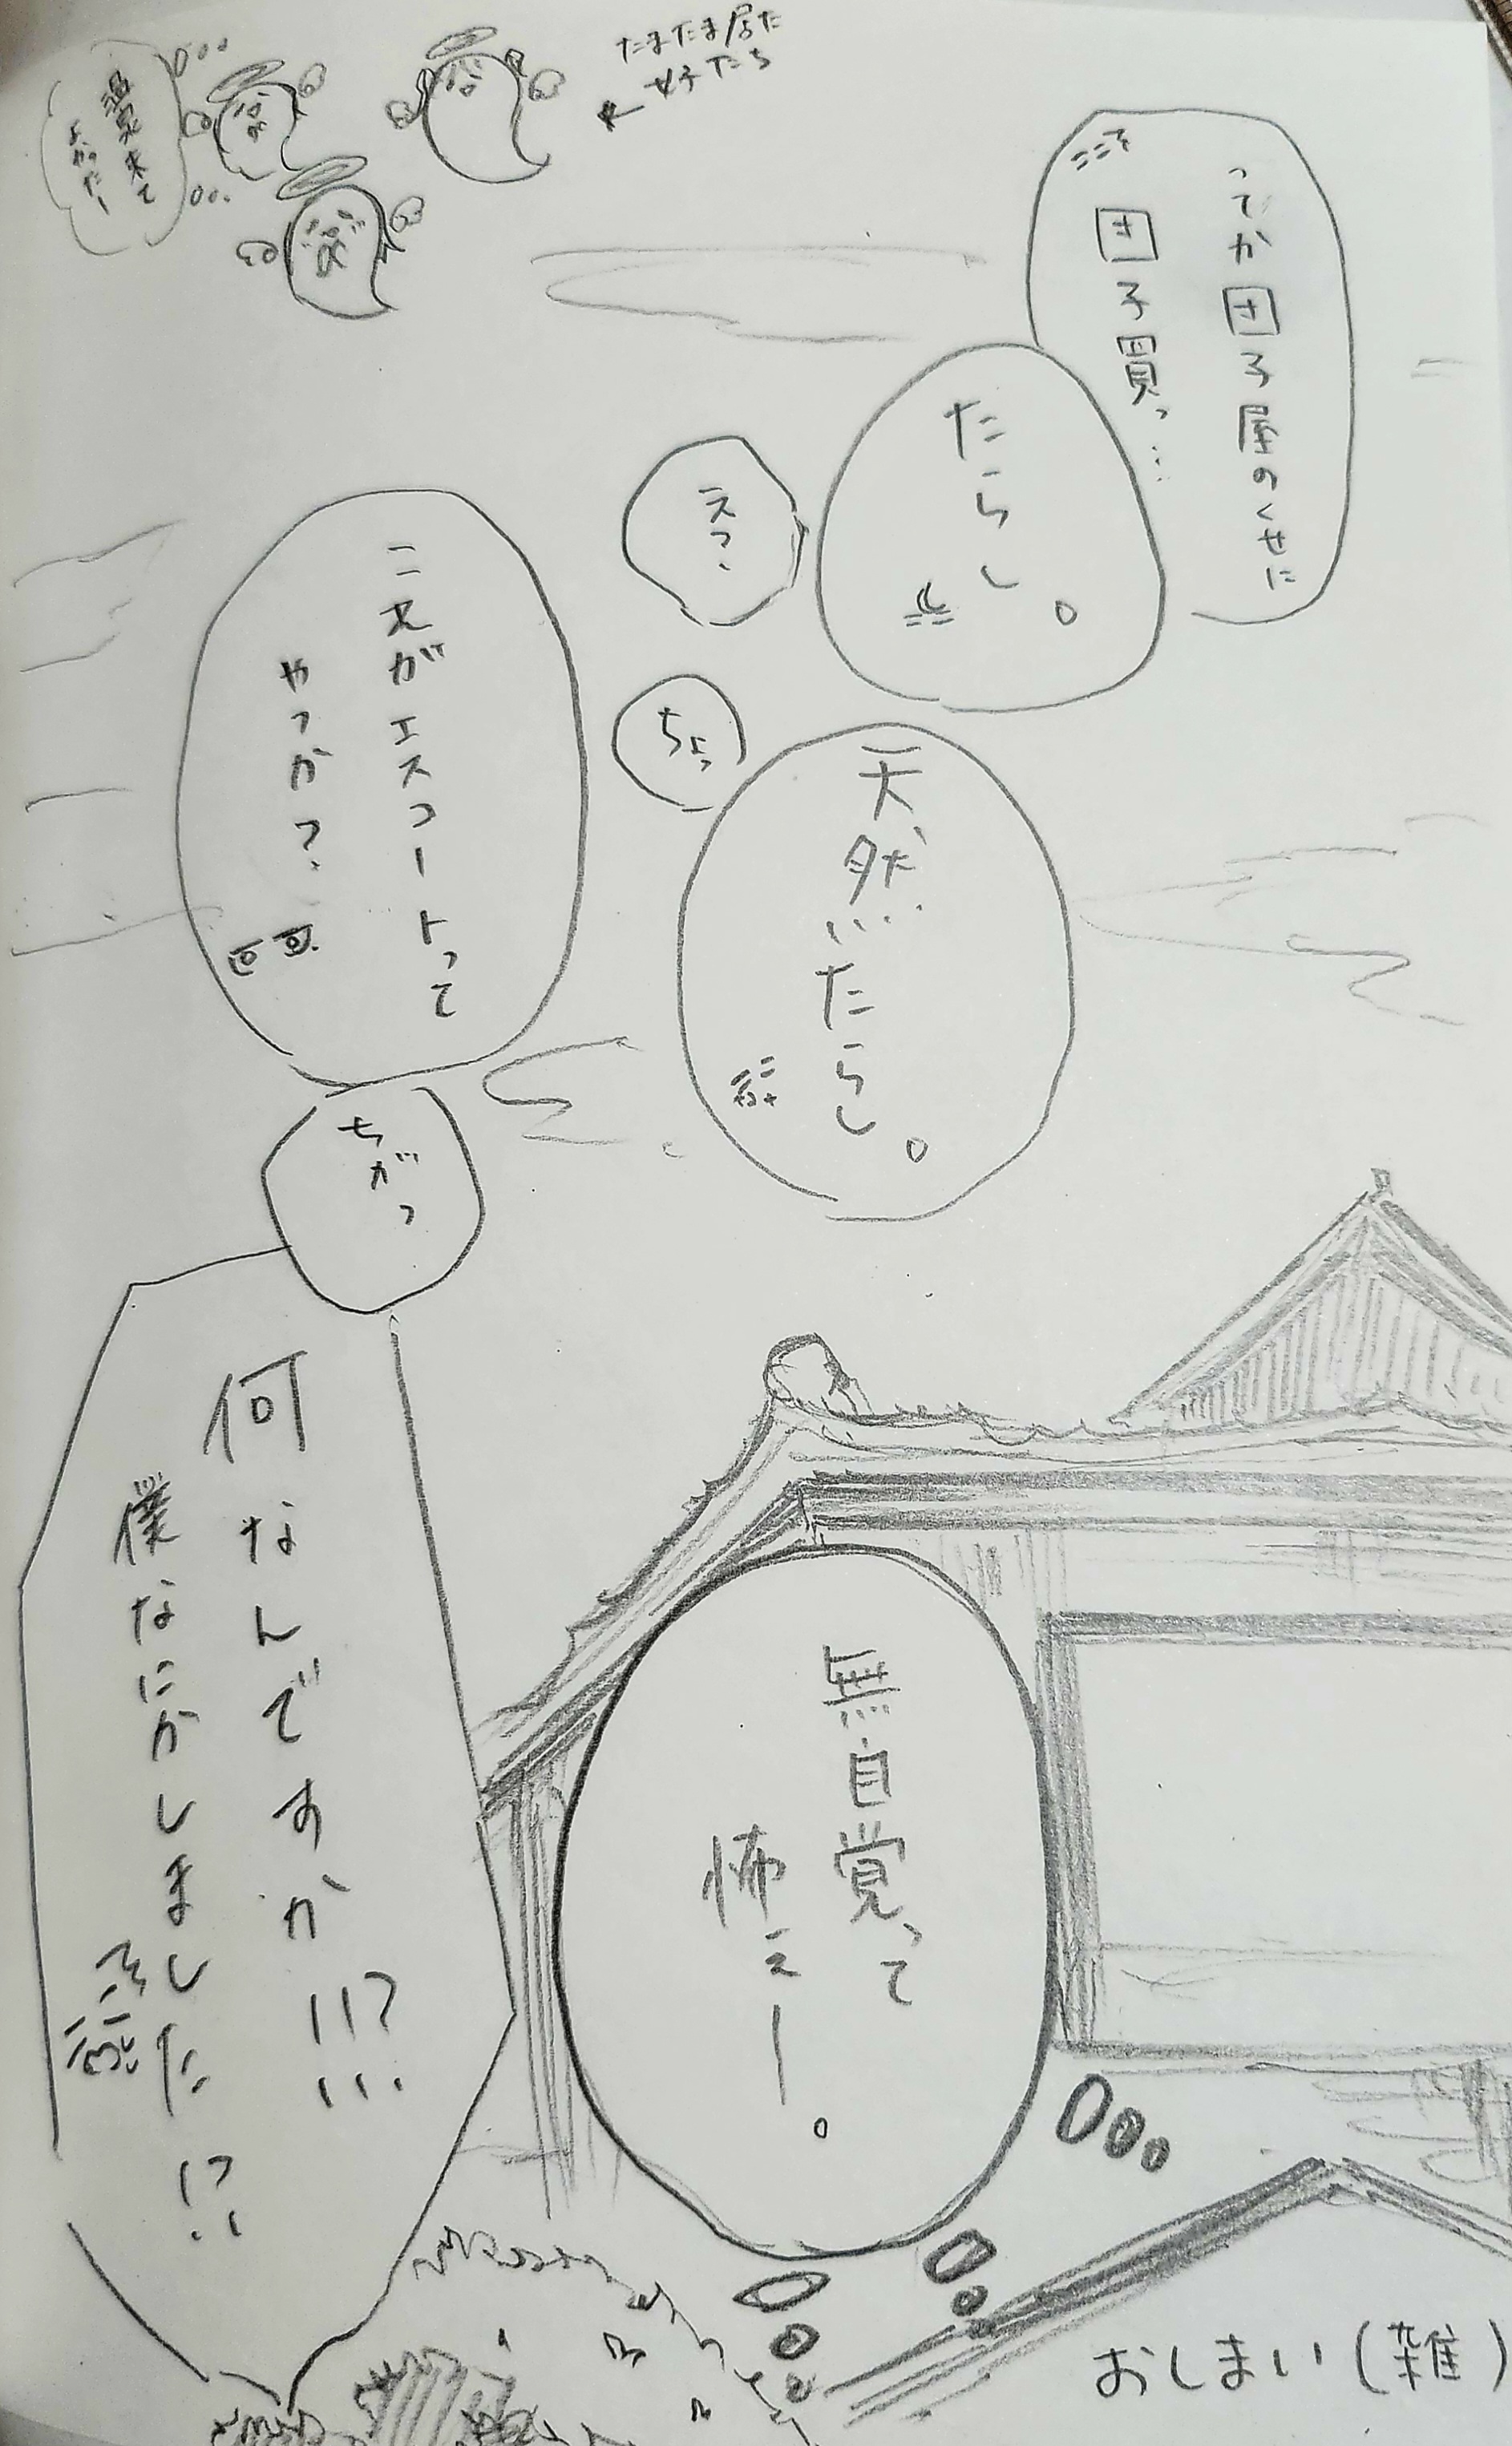 ってか団子屋のくせに
団子買っ…
たらし。
えっ、
ちょっ
天然たらし。
これがエスコートって
やつか?
ちがっ
何なんですか!!?
僕なにかしました!?
無自覚って
怖えー。
たまたま居た
女子たち
温泉来て
よかったー
おしまい(雑)